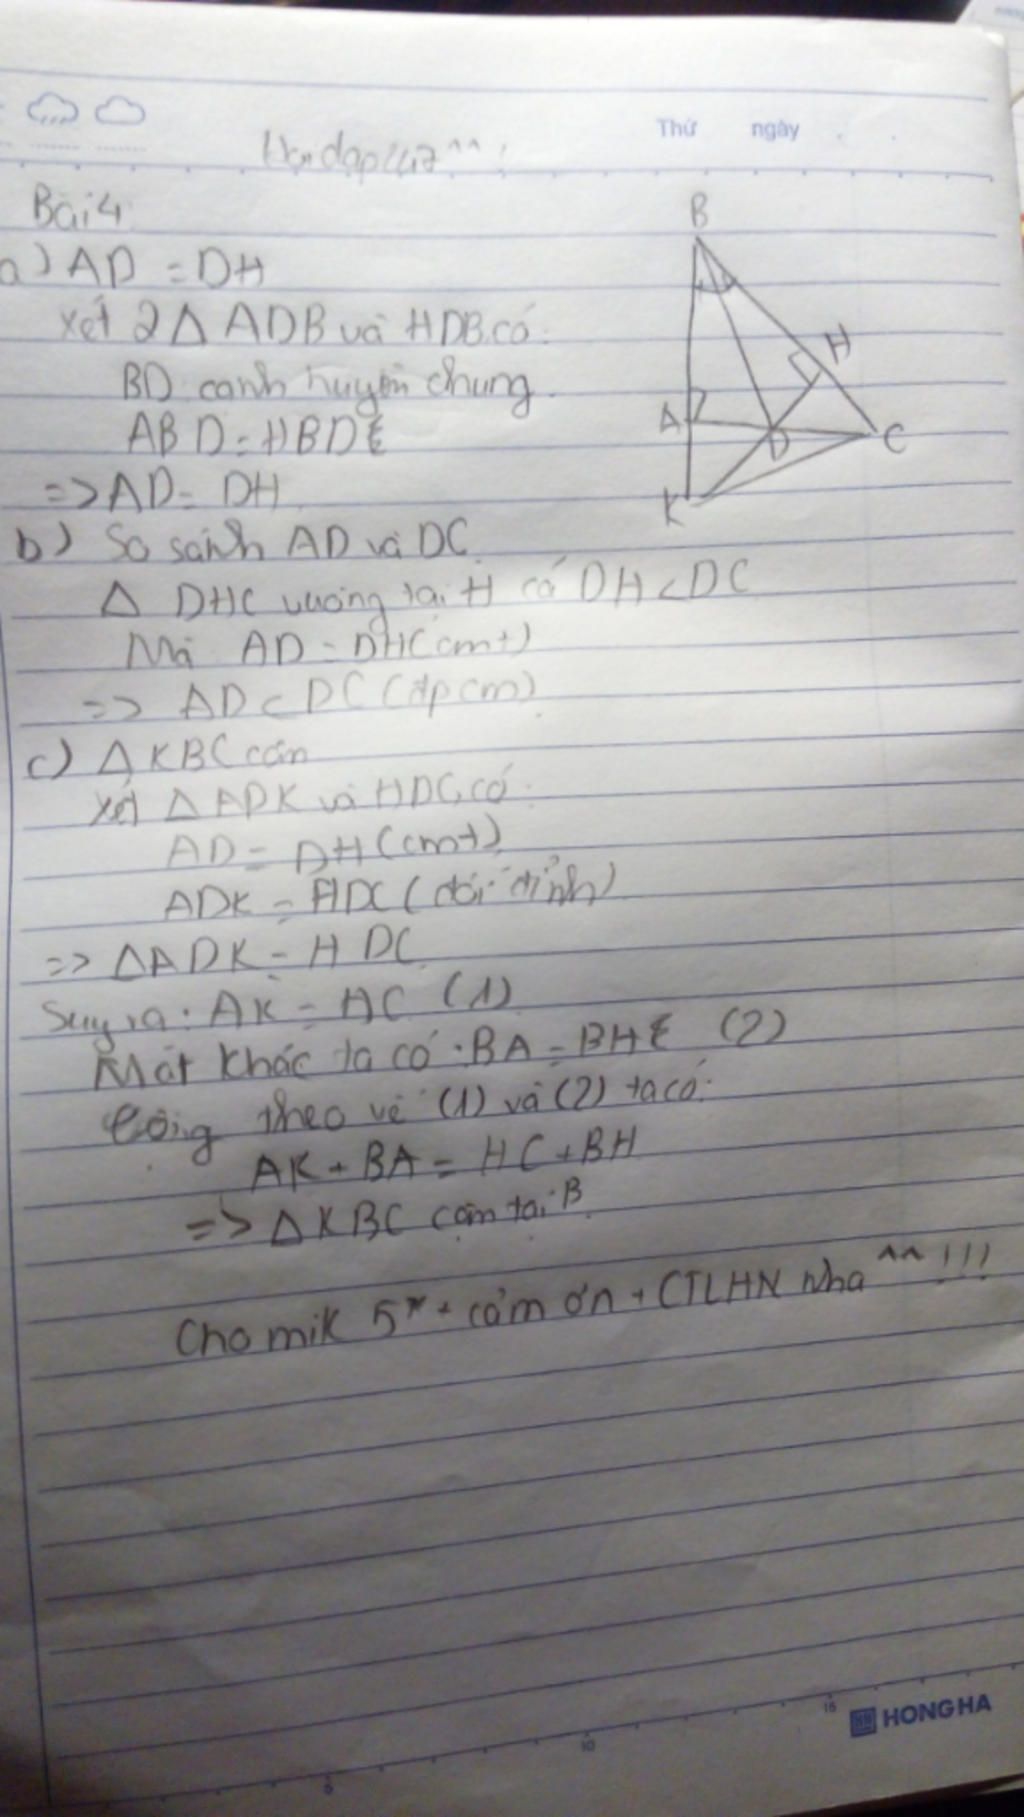 Thứ ngày
Hoidap247 ^^ !
Bài 4:
a) AD = DH
Xét 2 Δ ADB và HDB có:
BD cạnh huyền chung
ABD = HBD
=> AD = DH
b) So sánh AD và DC
Δ DHC vuông tại H có DH < DC
Mà AD = DH (cmt)
=> AD < DC (đpcm)
c) Δ KBC cân
Xét Δ ADK và HDC có:
AD = DH (cmt)
ADK = HDC (đối đỉnh)
=> Δ ADK = HDC
Suy ra: AK = HC (1)
Mặt khác ta có: BA = BH (2)
Cộng theo vế (1) và (2) ta có:
AK + BA = HC + BH
=> Δ KBC cân tại B
Cho mik 5* + cảm ơn + CTLHN nha ^^ !!!
B
H
A
D
C
K
5
10
15
HONG HA